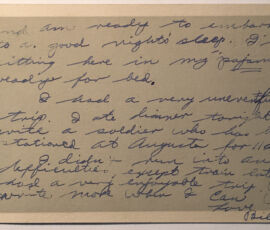 and am ready to embark
to a good night's sleep. I'm
sitting here in my pajam
ready for bed.
I had a very uneventful
trip. I ate dinner tonight
a soldier who has b
stationed at Augusta for
I didn't run into any
difficulties except train
had a very enjoyable trip.
write more when I can
Love,
Bill